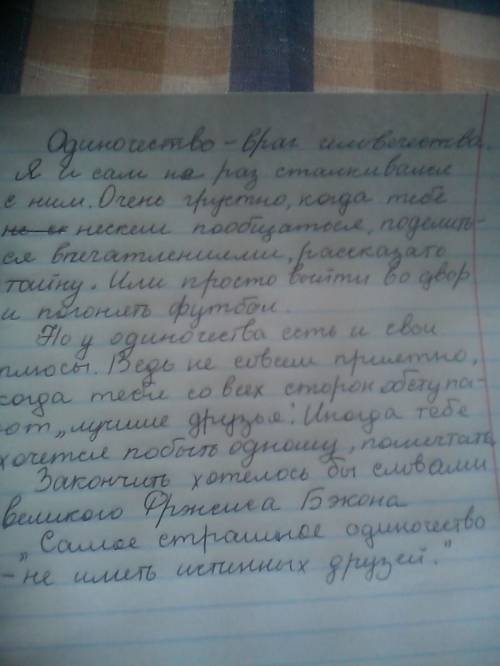 Одиночество - враг человечества.
Я и сам не раз сталкивался
с ним. Очень грустно, когда тебе
нескем пообщаться, поделить-
ся впечатлениями, рассказать
тайну. Или просто выйти во двор
и погонять футбол.
Но у одиночества есть и свои
плюсы. Ведь не совсем приятно,
когда тебя со всех сторон обступа-
ют „лучшие друзья". Иногда тебе
хочется побыть одному, помечтать.
Закончить хотелось бы словами
великого Фрэнсиса Бэкона
„Самое страшное одиночество
- не иметь истинных друзей."